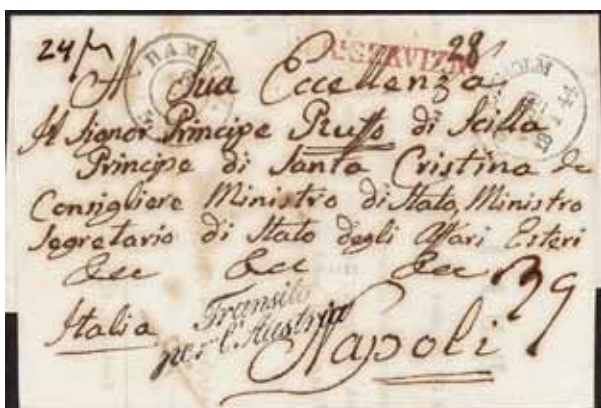 28
HAMB
SERVIZIO
A Sua Eccellenza
Il Signor Principe Ruffo di Scilla
Principe di Santa Cristina &c
Consigliere Ministro di Stato, Ministro
Segretario di Stato degli Affari Esteri
&cc &cc &cc
39
Italia
Transito
per l'Austria
Napoli